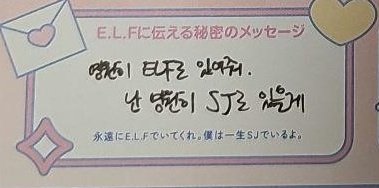 E.L.Fに伝える秘密のメッセージ
영원히 ELF로 있어줘.
난 영원히 SJ로 있을게
永遠にE.L.Fでいてくれ。僕は一生SJでいるよ。